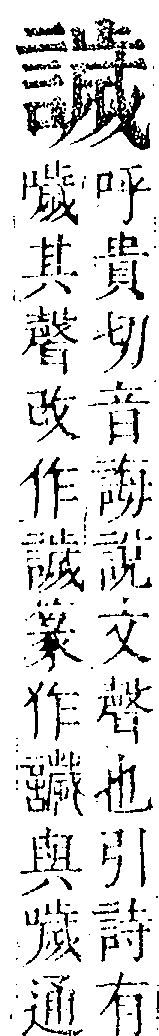 呼貴切音誨說文聲也引詩有
噦其聲改作篆作與噦通